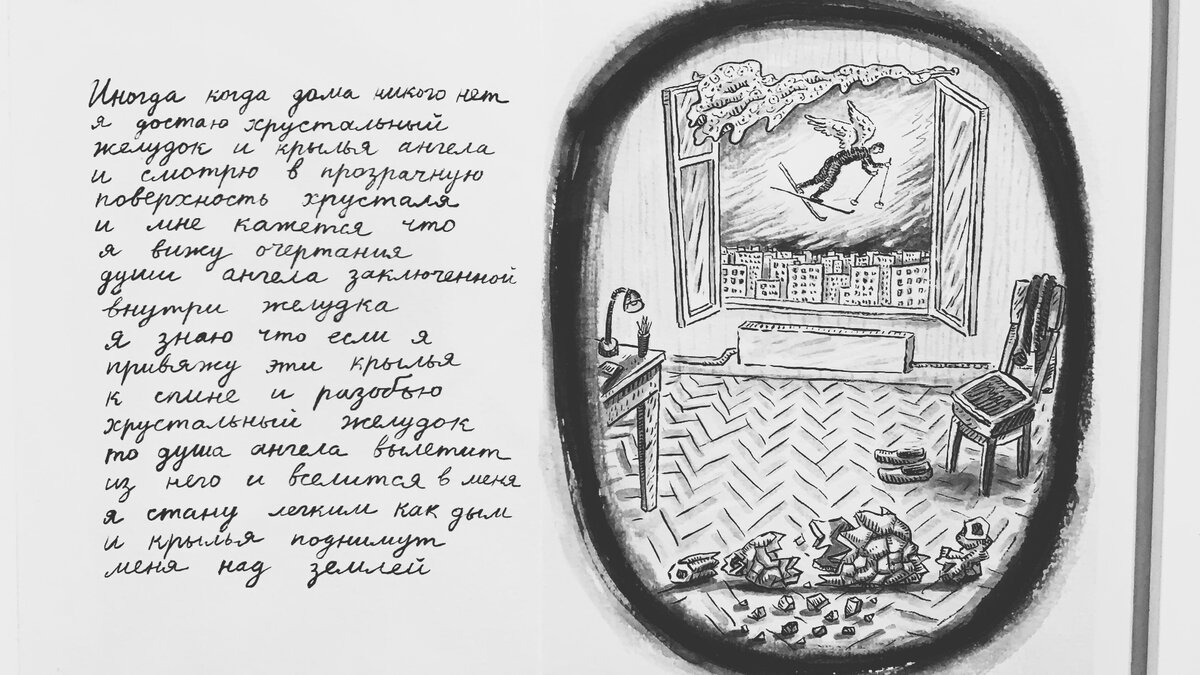 Иногда когда дома никого нет
я достаю хрустальный
желудок и крылья ангела
и смотрю в прозрачную
поверхность хрусталя
и мне кажется что
я вижу очертания
души ангела заключенной
внутри желудка
я знаю что если я
привяжу эти крылья
к спине и разобью
хрустальный желудок
то душа ангела вылетит
из него и вселится в меня
я стану легким как дым
и крылья поднимут
меня над землей